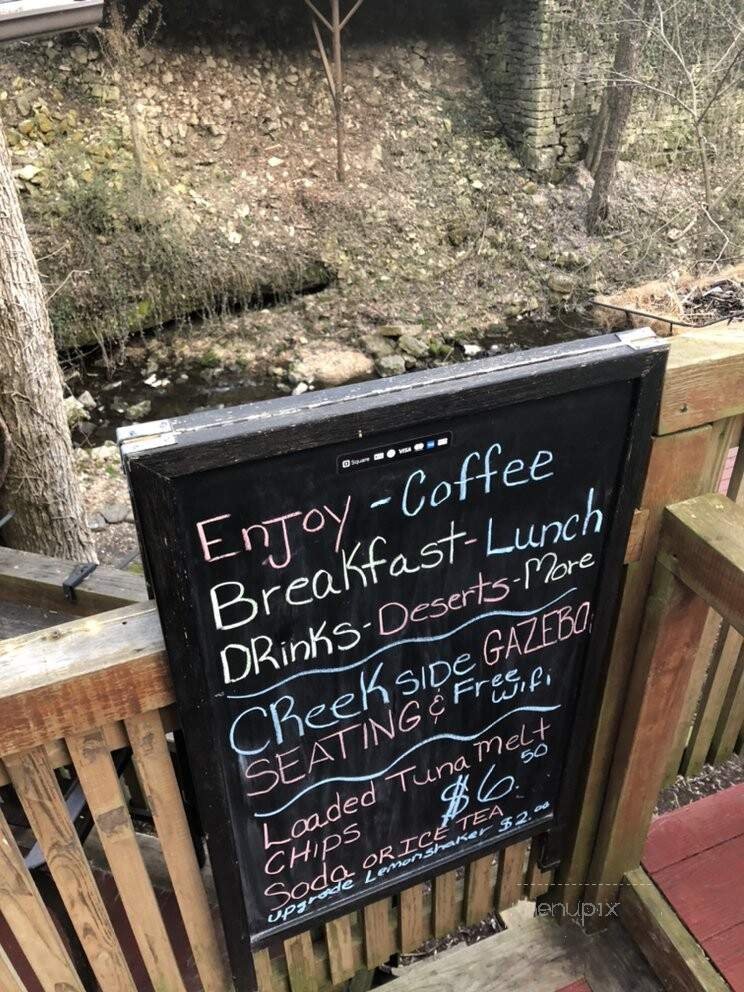 Square VISA
Enjoy - Coffee
Breakfast - Lunch
DRinks - Deserts - More
CReekside GAZEBO
SEATING & Free Wifi
Loaded Tuna Melt
CHIPS $6.50
Soda OR ICE TEA
upgrade Lemonshaker $2.00
enupix